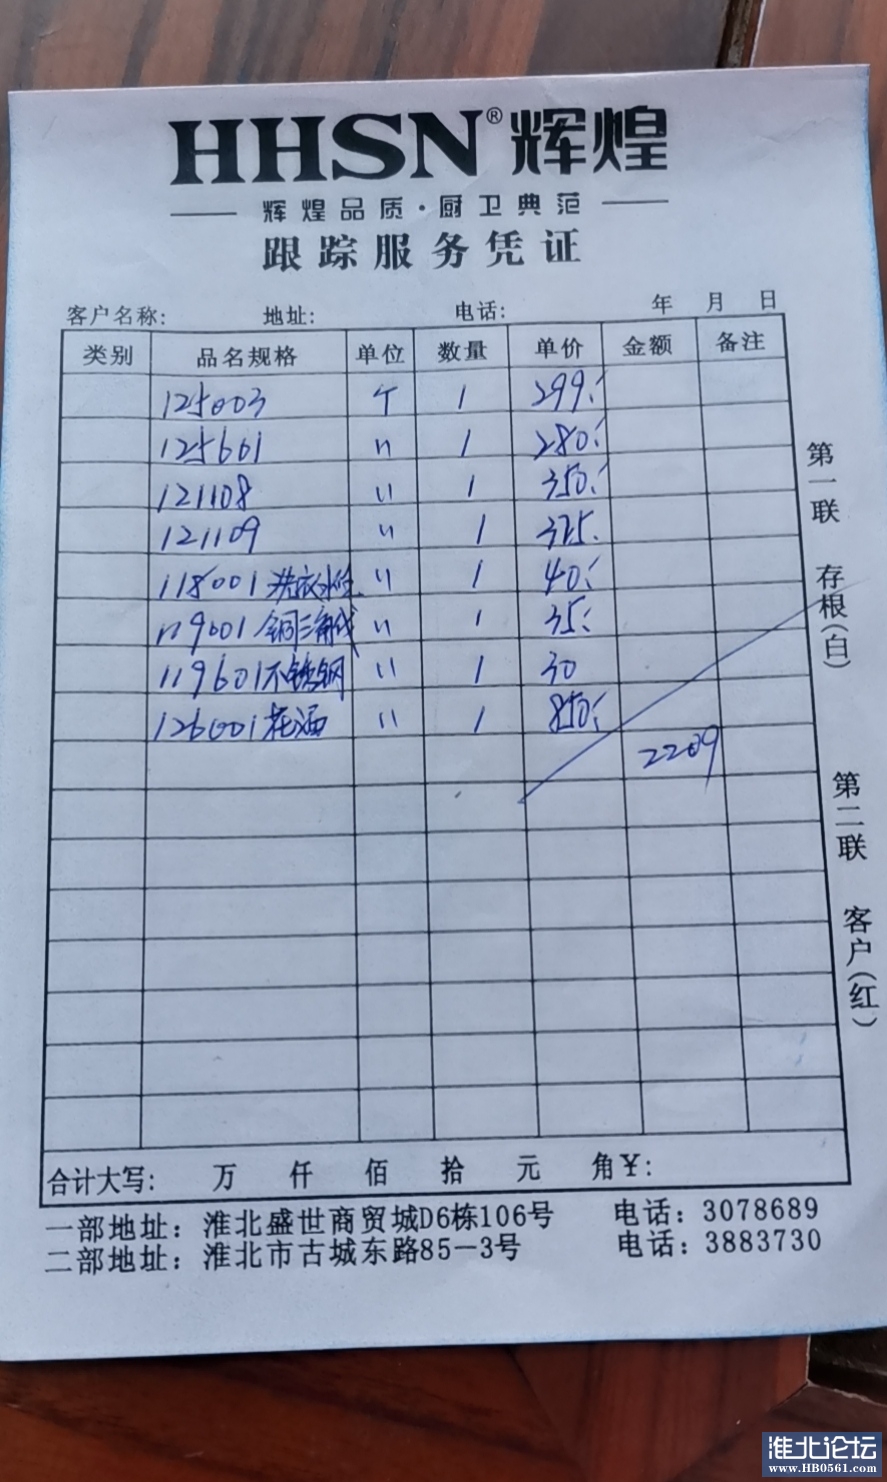 HHSN®辉煌
辉煌品质·厨卫典范
跟踪服务凭证
客户名称: 地址: 电话: 年 月 日
类别 品名规格 单位 数量 单价 金额 备注
125003 个 1 299.
125601 〃 1 280.
121108 〃 1 350.
121109 〃 1 325.
118001 洗衣水咀 〃 1 40.
119001 铜三角伐 〃 1 35.
119601 不锈钢 〃 1 30
126001 花洒 〃 1 850.
2209
第一联 存根(白)
第二联 客户(红)
合计大写: 万 仟 佰 拾 元 角¥:
一部地址: 淮北盛世商贸城D6栋106号 电话: 3078689
二部地址: 淮北市古城东路85-3号 电话: 3883730
淮北论坛
www.HB0561.com